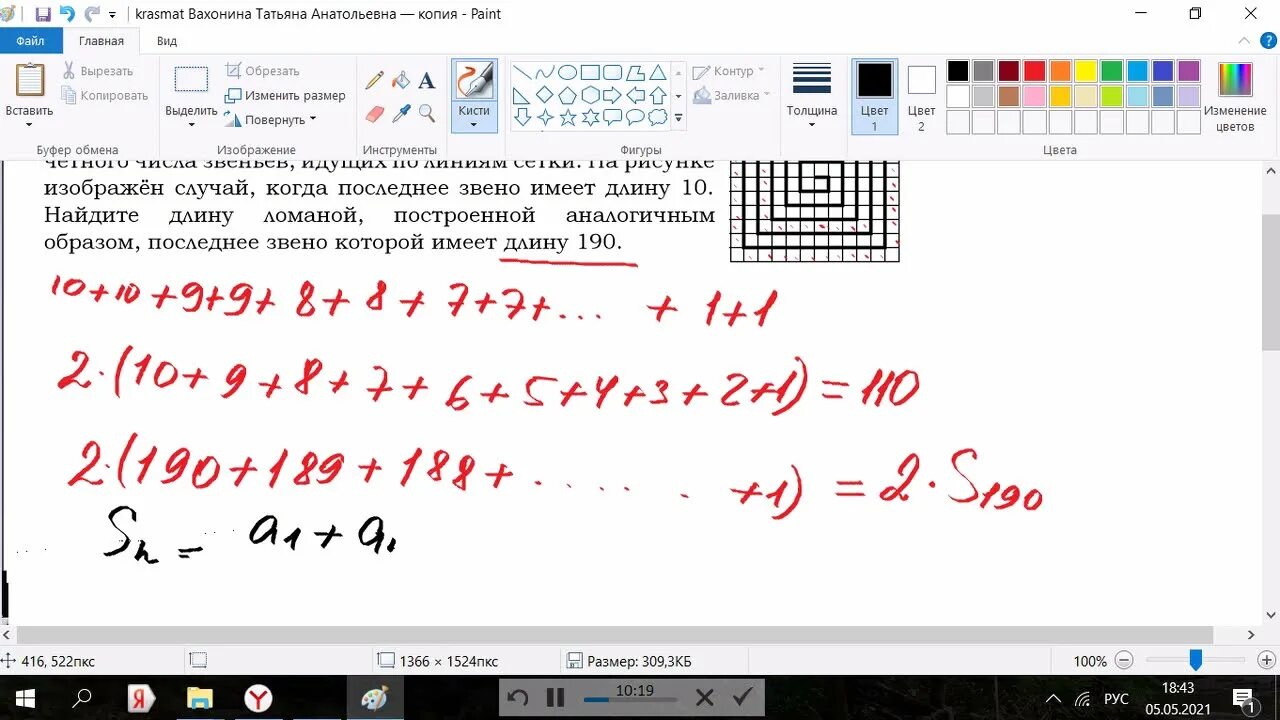 krasmat Вахонина Татьяна Анатольевна — копия - Paint
Файл
Главная
Вид
Вставить
Вырезать
Копировать
Буфер обмена
Выделить
Обрезать
Изменить размер
Повернуть
Изображение
A
Инструменты
Кисти
Контур
Заливка
Фигуры
Толщина
Цвет 1
Цвет 2
Изменение цветов
Цвета
чётного числа звеньев, идущих по линиям сетки. На рисунке
изображён случай, когда последнее звено имеет длину 10.
Найдите длину ломаной, построенной аналогичным
образом, последнее звено которой имеет длину 190.
10+10+9+9+8+8+7+7+... +1+1
2·(10+9+8+7+6+5+4+3+2+1)=110
2·(190+189+188+...... +1)=2·S190
Sn = a1+a
416, 522пкс
1366 × 1524пкс
Размер: 309,3КБ
100%
Я
Y
10:19
РУС
18:43
05.05.2021
1